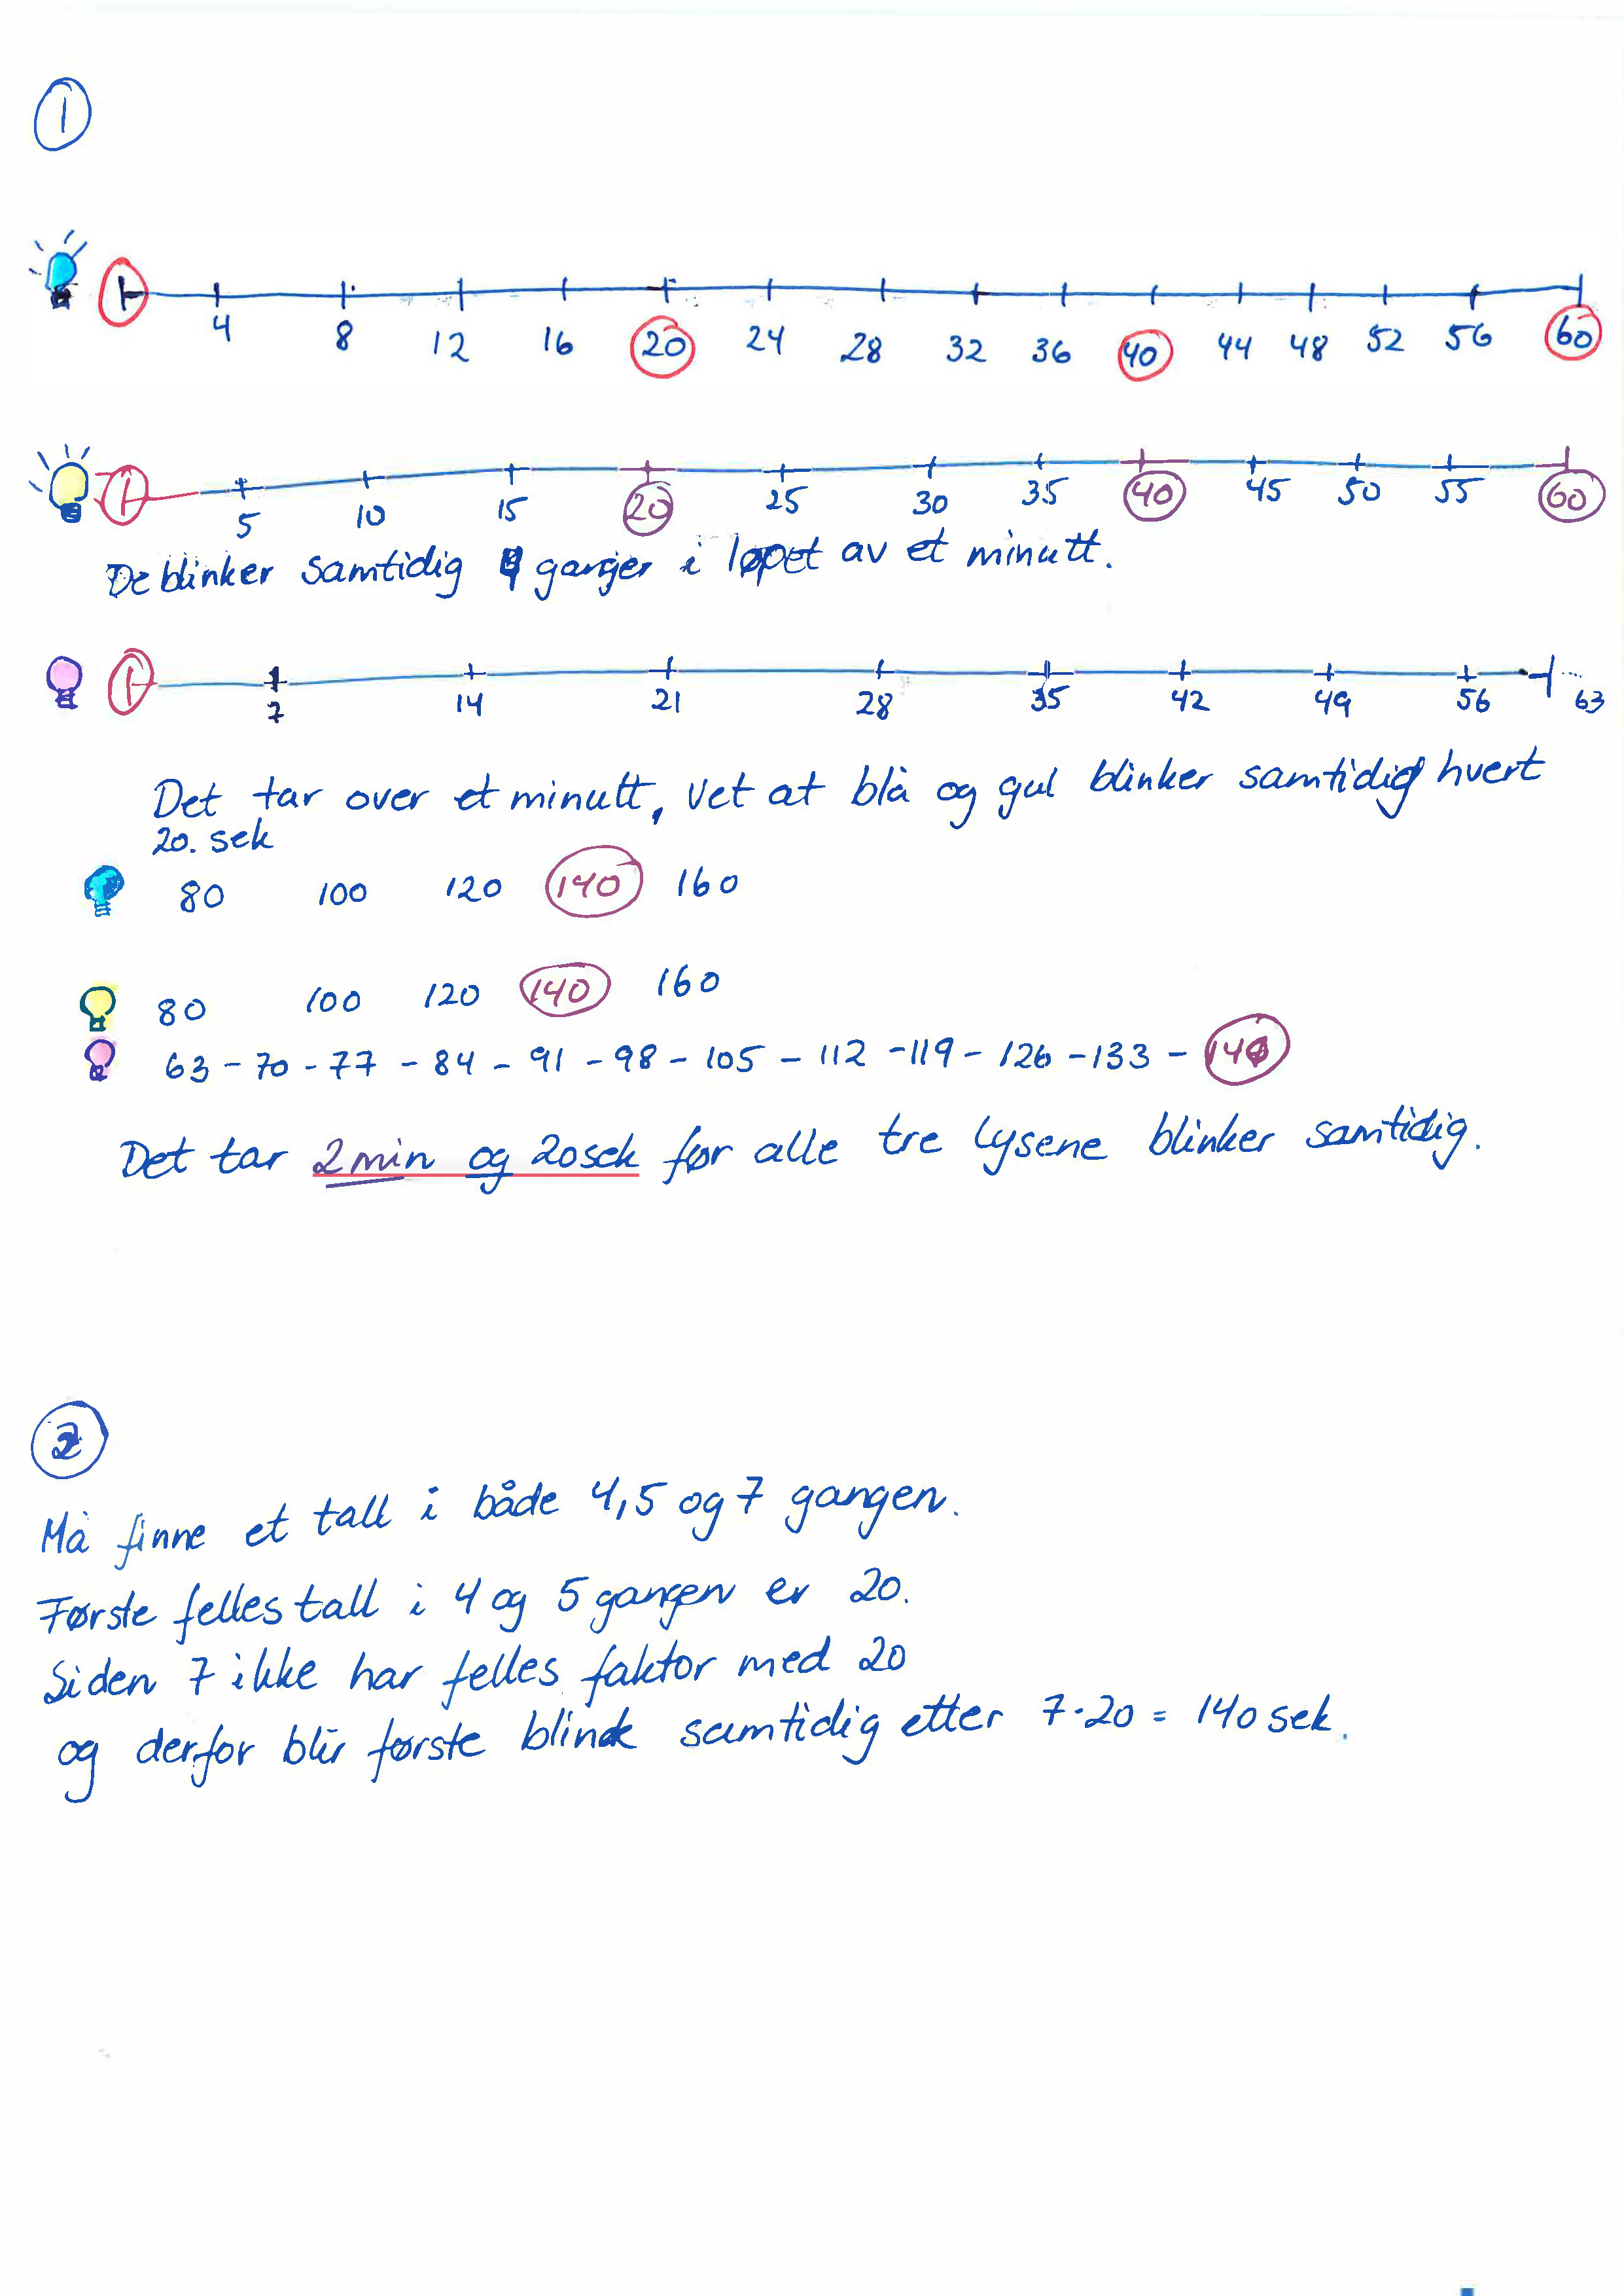 1
4 8 12 16 20 24 28 32 36 40 44 48 52 56 60
5 10 15 20 25 30 35 40 45 50 55 60
De blinker samtidig 4 ganger i løpet av et minutt.
7 14 21 28 35 42 49 56 63
Det tar over et minutt, vet at blå og gul blinker samtidig hvert
20. sek
80 100 120 140 160
80 100 120 140 160
63 - 70 - 77 - 84 - 91 - 98 - 105 - 112 - 119 - 126 - 133 - 140
Det tar 2 min og 20 sek før alle tre lysene blinker samtidig.
2
Må finne et tall i både 4,5 og 7 gangen.
Første felles tall i 4 og 5 gangen er 20.
Siden 7 ikke har felles faktor med 20
og derfor blir første blink samtidig etter 7·20 = 140 sek.